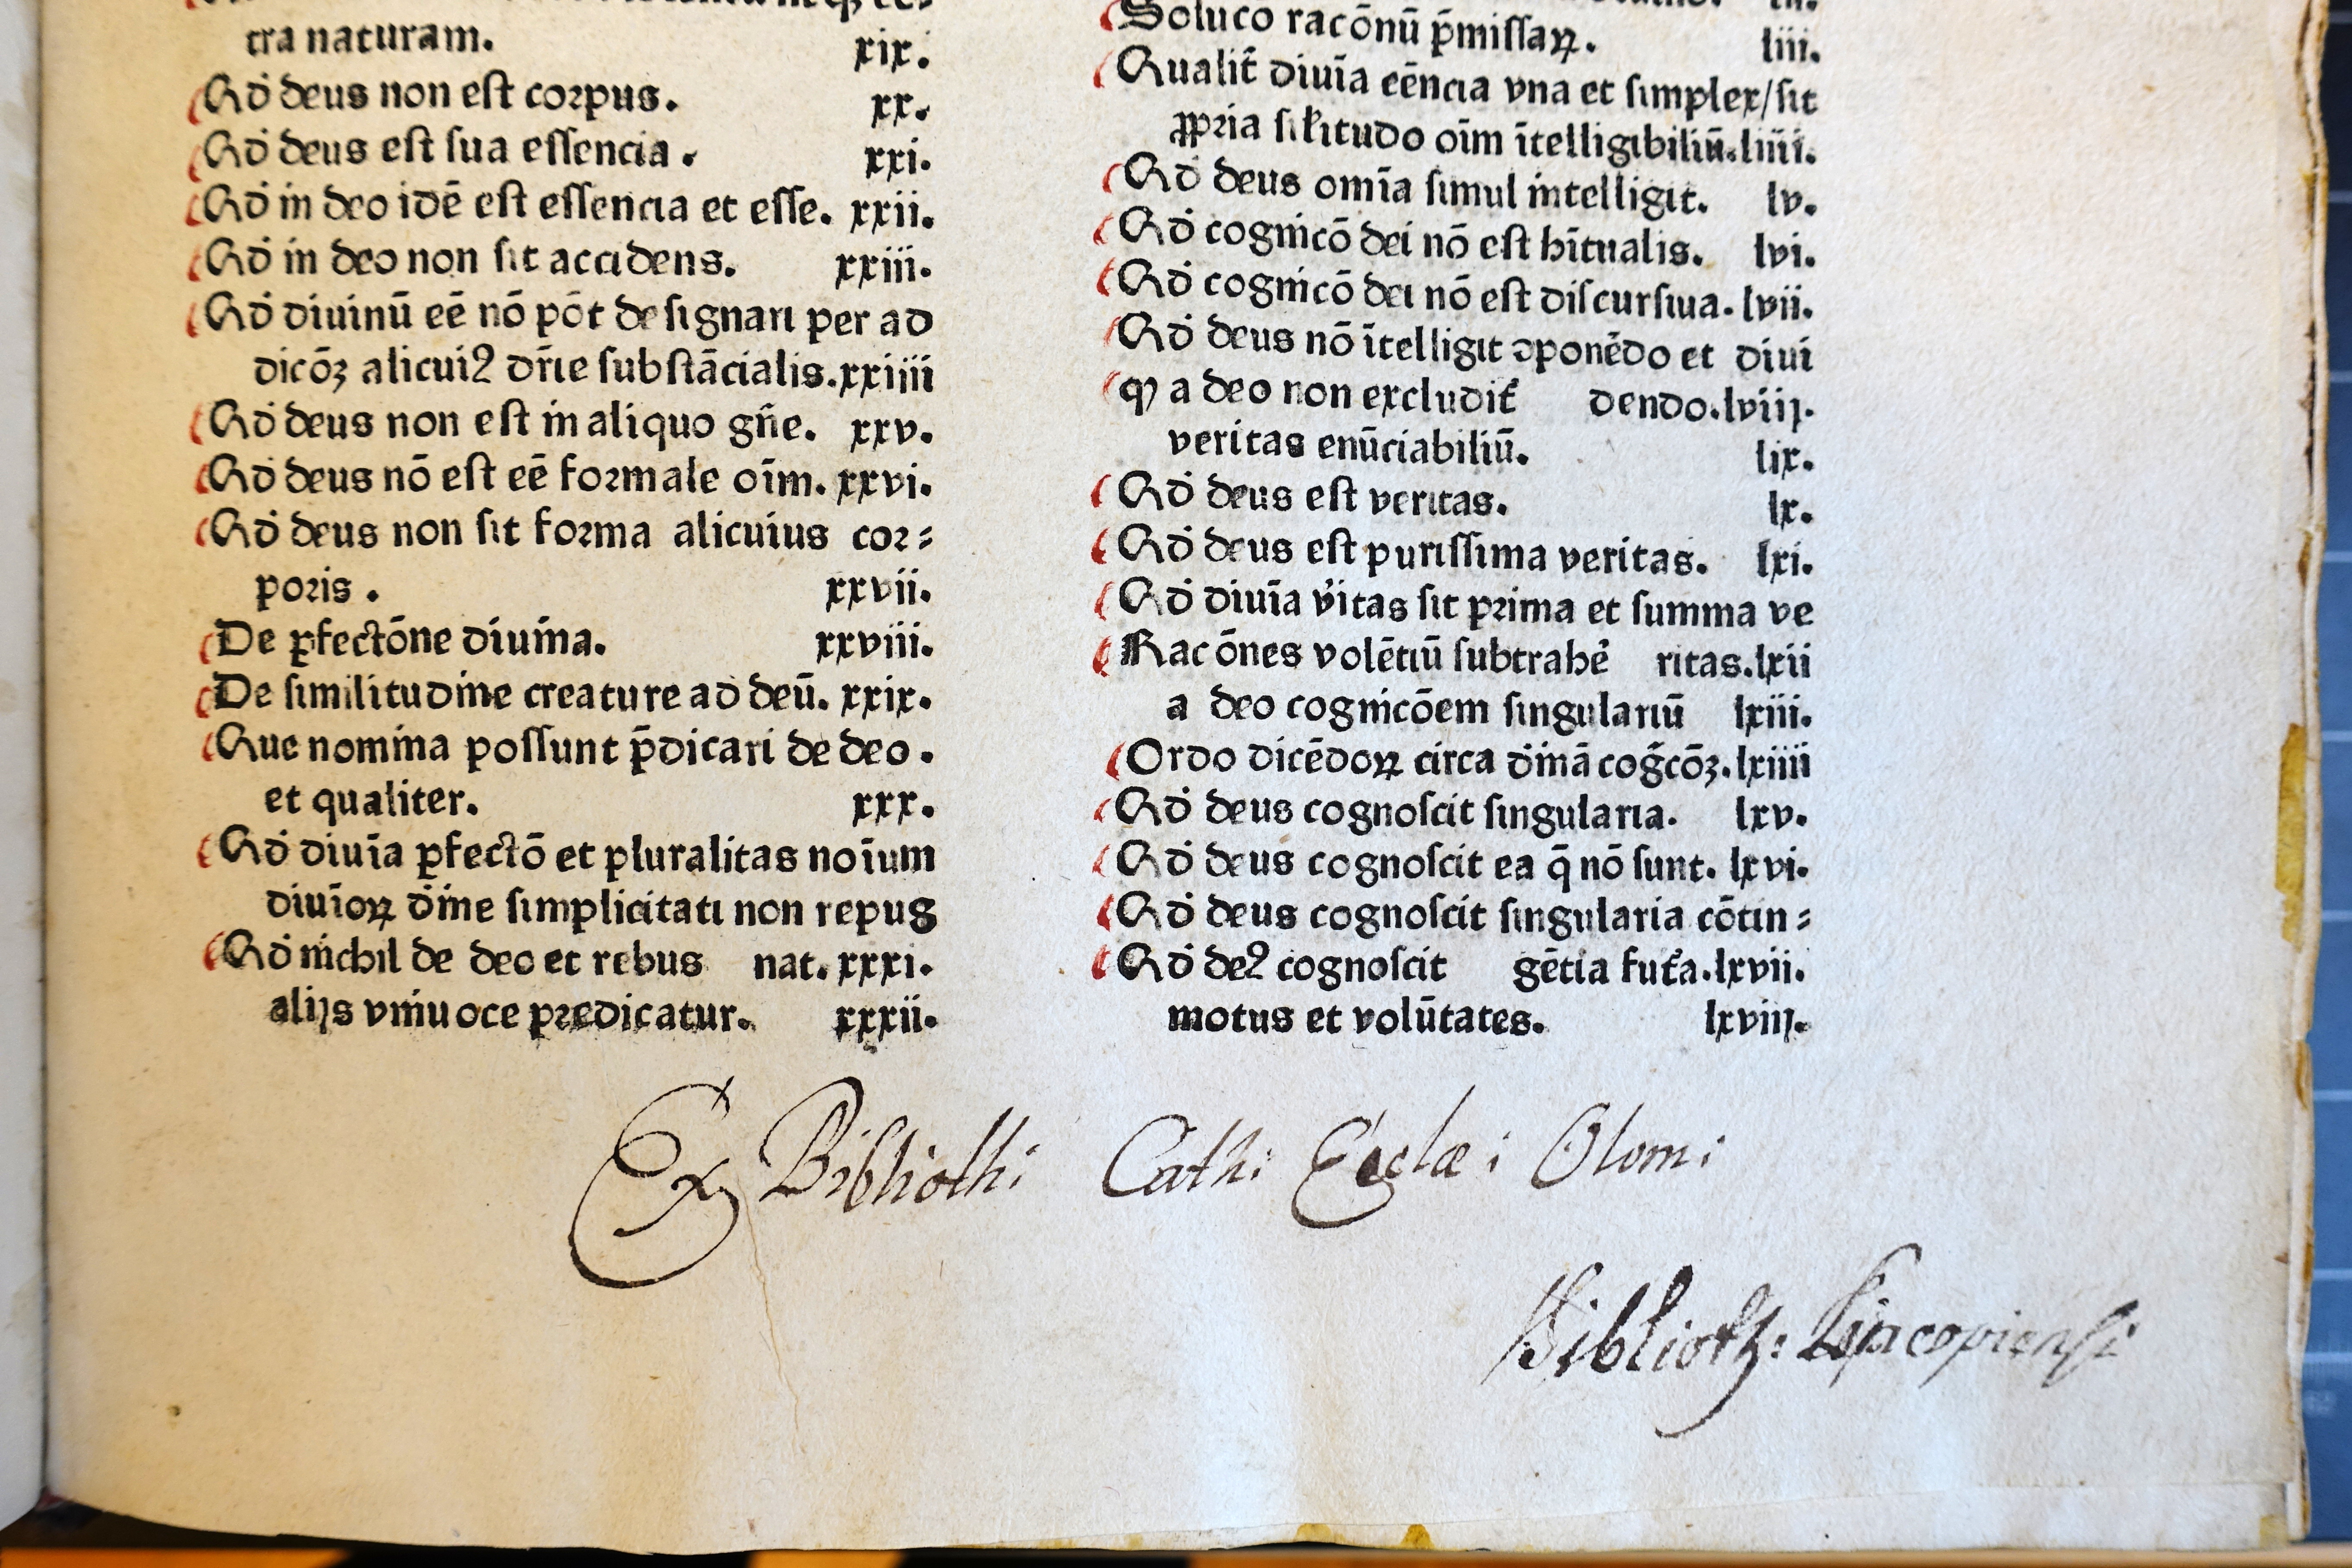 tra naturam. xix.
Qd deus non est corpus. xx.
Qd deus est sua essencia. xxi.
Qd in deo idē est essencia et esse. xxii.
Qd in deo non sit accidens. xxiii.
Qd diuinū eē nō pōt designari per ad
dicōꝫ alicuiꝰ dr̄ie substācialis. xxiiii
Qd deus non est in aliquo gn̄e. xxv.
Qd deus nō est eē formale oīm. xxvi.
Qd deus non sit forma alicuius cor⸗
poris. xxvii.
De ꝑfectōne diuina. xxviii.
De similitudine creature ad deū. xxix.
Que nomina possunt p̄dicari de deo.
et qualiter. xxx.
Qd diuīa ꝑfectō et pluralitas noīum
diuīoꝝ diīne simplicitati non repug
Qd nichil de deo et rebus nat. xxxi.
alijs vniuoce predicatur. xxxii.
Soluco racōnū p̄missaꝝ. liii.
Qualit̄ diuīa eēncia vna et simplex/sit
ꝓpria silitudo oīm ītelligibiliū. liiii.
Qd deus omīa simul intelligit. lv.
Qd cognicō dei nō est hītualis. lvi.
Qd cognicō dei nō est discursiua. lvii.
Qd deus nō ītelligit ꝯponēdo et diui
ꝙ a deo non excludit̄ dendo. lviij.
veritas enūciabiliū. lix.
Qd deus est veritas. lx.
Qd deus est purissima veritas. lxi.
Qd diuīa v̓itas sit prima et summa ve
Racōnes volētiū subtrahe̓ ritas. lxii
a deo cognicōem singulariū lxiii.
Ordo dicēdoꝝ circa diīnā cog̓cōꝫ. lxiiii
Qd deus cognoscit singularia. lxv.
Qd deus cognoscit ea q̄ nō sunt. lxvi.
Qd deus cognoscit singularia cōtin⸗
Qd deꝰ cognoscit gētia fut̓a. lxvii.
motus et volūtates. lxviij.
Ex Biblioth: Cath: Ecclæ: Olom:
Biblioth: Lincopiensi